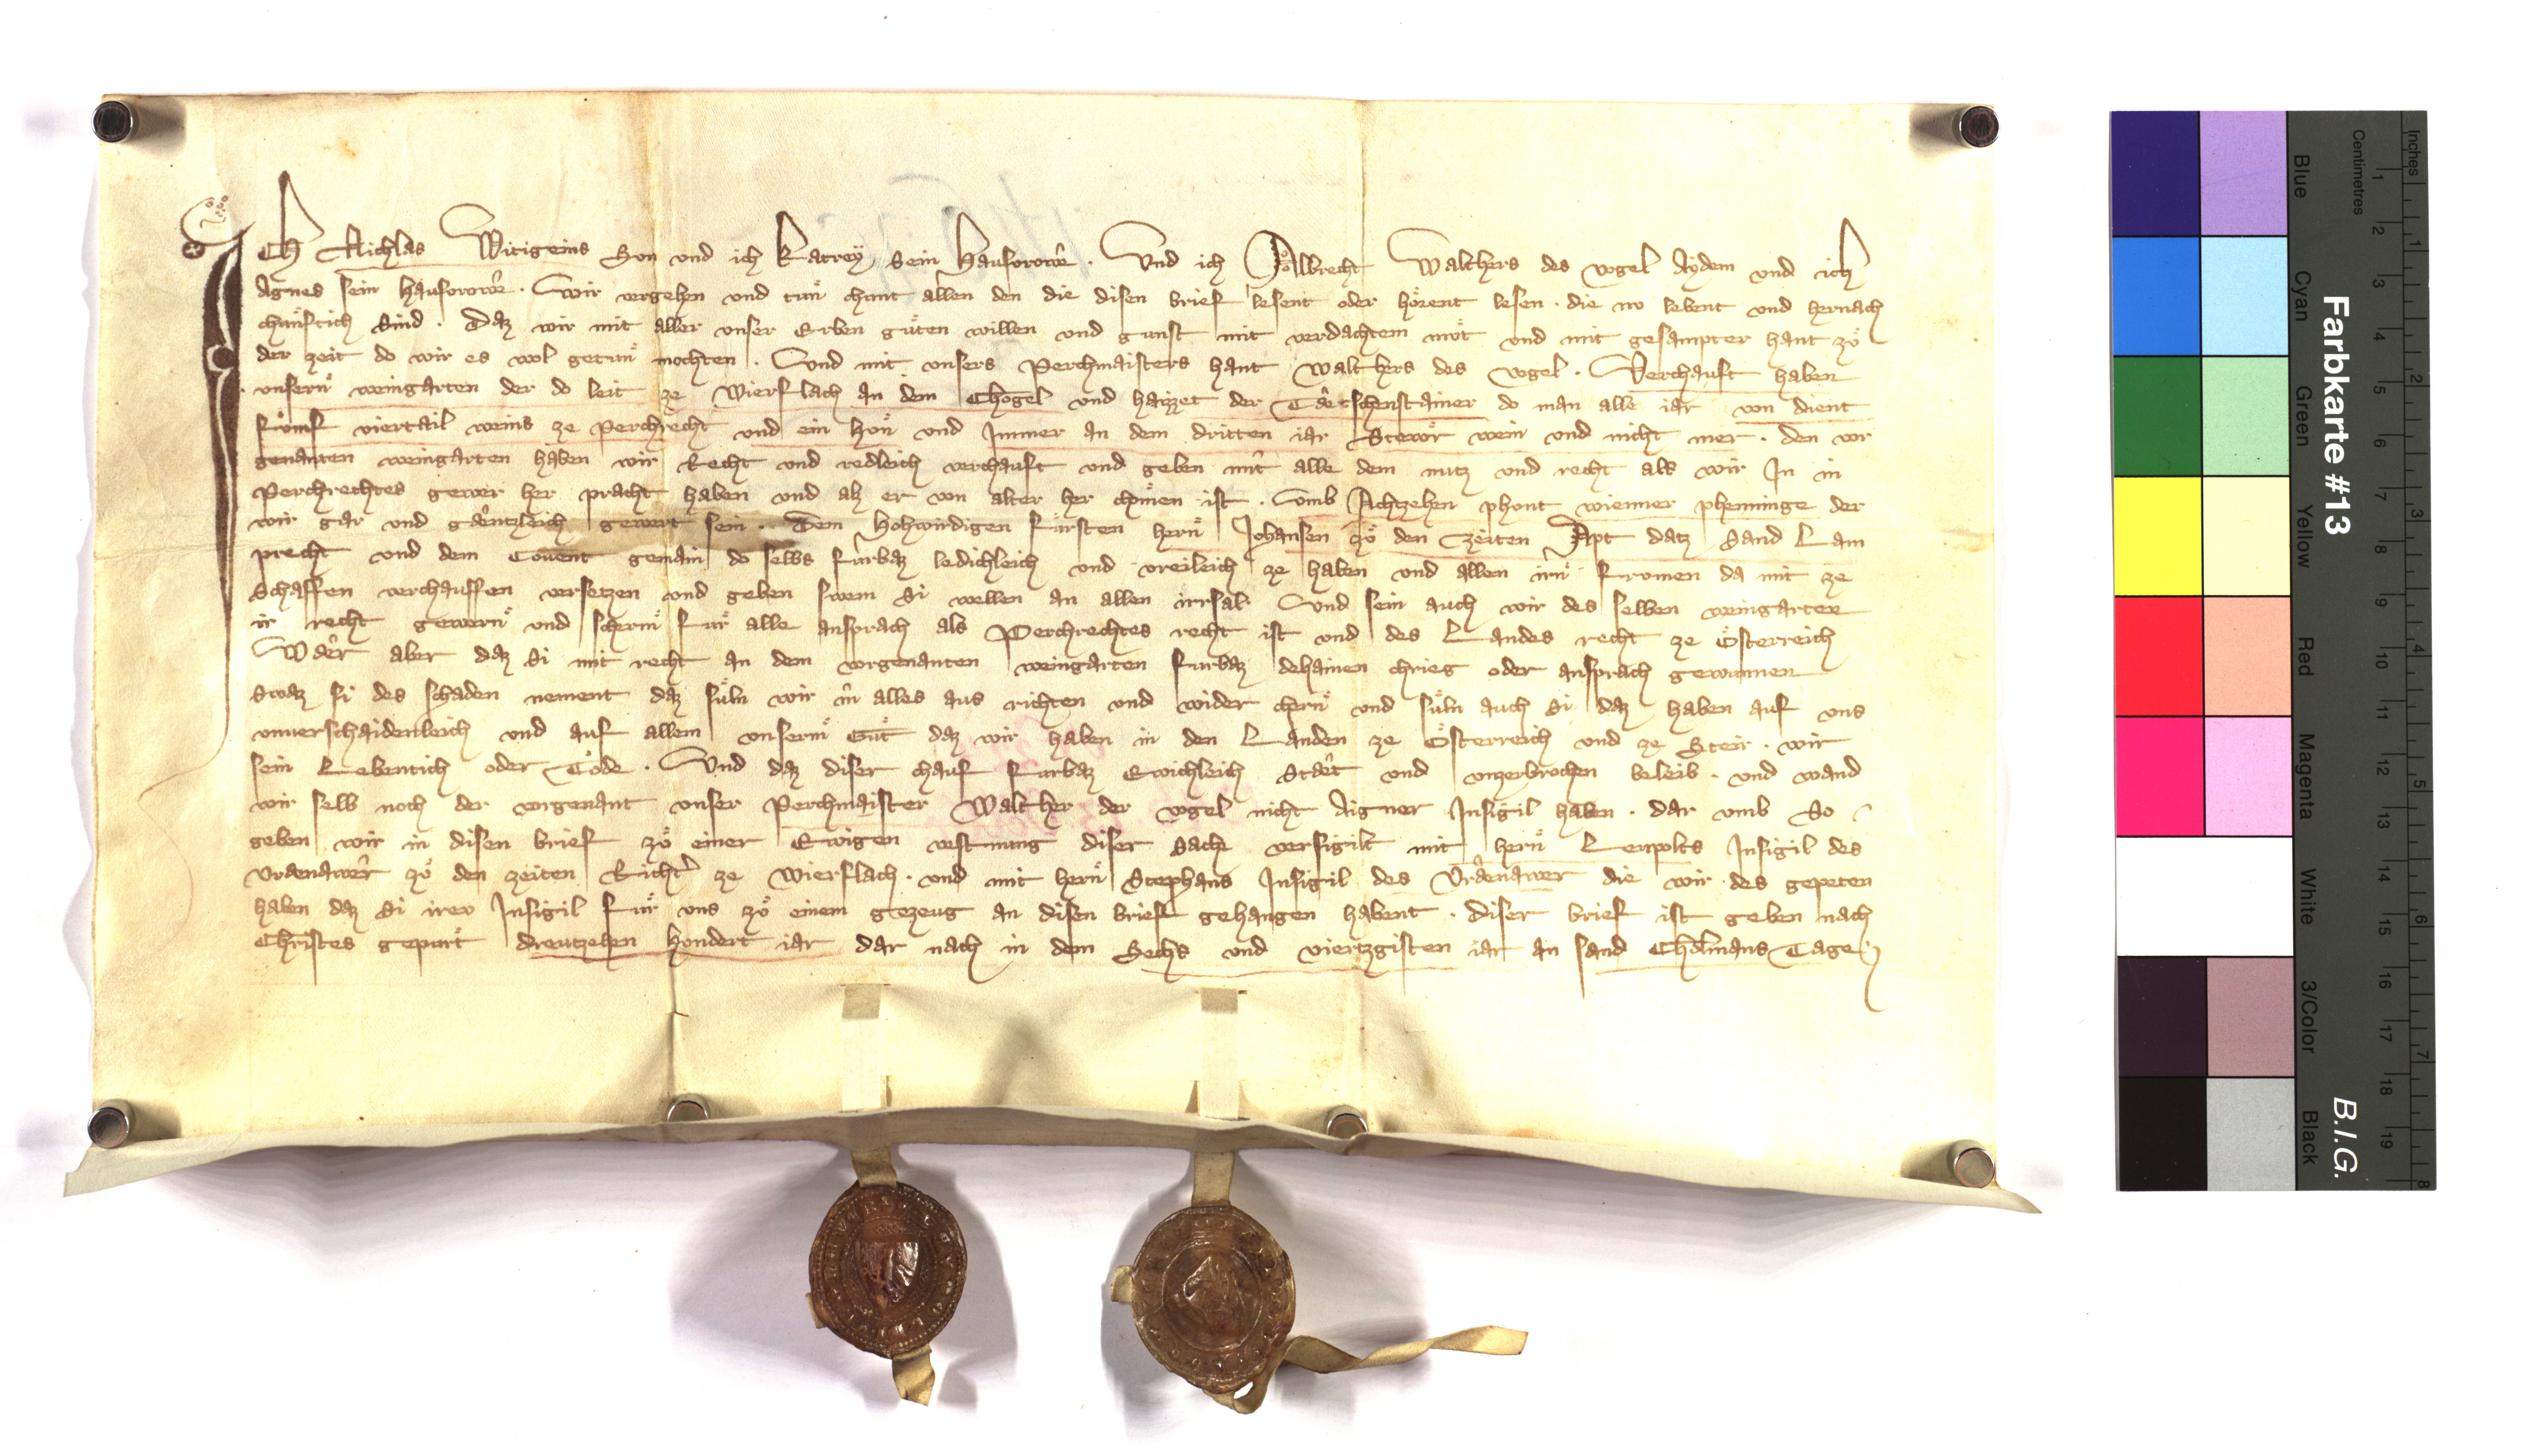 Ich Nichlas Witigeins Sun vnd ich Katrey sein Hausvrowe . Vnd ich Albrecht Walthers des vogel Aydem vnd ich
Agnes sein hausvrowe . Wir vergehen vnd tůn chunt allen den die disen brief lesent oder hoͤrent lesen . die nv lebent vnd hernach
chuͤnftich sind . Daz wir mit aller vnser Erben guͤten willen vnd gunst mit verdachtem můt vnd mit gesampter hant zů
der zeit do wir es wol getůn mochten . Vnd mit vnsers Perchmaisters hant Walthers des vogel . Verchauft haben
vnsern weingarten der do leit ze Wierflach an dem Chogel vnd haizzet der do man alle iar von dient
fuͤmf viertail weins ze Perchrecht vnd ein hůn vnd Immer an dem dritten iar Stewr wein vnd nicht mer . den vor
genanten weingarten haben wir Recht vnd redleich verchauft vnd geben mit alle dem nutz vnd recht als wir In in
Perchrechtes gewer her pracht haben vnd alz er von alter her chomen ist . Vmb Achtzehen phunt wienner phenninge der
wir gar vnd gaͤntzleich gewert sein . Dem Hohwirdigen fuͤrsten hern Johansen zů den zeiten Apt datz Sand Lam
precht vnd dem Couent gemain do selbs furbaz ledichleich vnd vreileich ze haben vnd allen irn frumen da mit ze
schaffen verchauffen versetzen vnd geben swem si wellen an allen irrsal . Vnd sein auch wir des selben weingarten
ir recht gewern vnd scherm fuͤr alle ansprach als Perchrechtes recht ist vnd des Landes recht ze Osterreich
Wer aber daz si mit recht an dem vorgenanten weingarten furbaz dehainen chrieg oder ansprach gewunnen
Swaz si des schaden nement daz suͤln wir in alles aus richten vnd wider chern vnd suͤln auch si daz haben auf vns
vnuerschaidenleich vnd auf allem vnserm Gůt daz wir haben in den Landen ze Osterreich vnd ze Steir . wir
sein Lebentich oder Tode . Vnd daz diser chauf furbaz Ewichleich staͤt vnd vnzerbrochen beleib . vnd wand
wir selb noch der vorgenant vnser Perchmaister Walther der vogel nicht Aigner Insigil haben . dar vmb So
geben wir in disen brief zů einer Ewigen vestnung diser Sache versigilt mit hern Leupolts Insigil des
Vrdenawer zů den zeiten Richter ze Wierflach . vnd mit hern Stephans Insigil des Vrdenawer die wir des gepeten
haben daz si irev Insigil fuͤr vns zů einem gezeug an disen brief gehangen habent . diser brief ist geben nach
Christes gepurt dreutzehen hundert iar dar nach in dem Sechs vnd viertzgisten iar an sand Cholmans Tage
Farbkarte #13
B.I.G.
Inches
Centimetres
Blue
Cyan
Green
Yellow
Red
Magenta
White
3/Color
Black
1 2 3 4 5 6 7 8 9 10 11 12 13 14 15 16 17 18 19
1 2 3 4 5 6 7 8